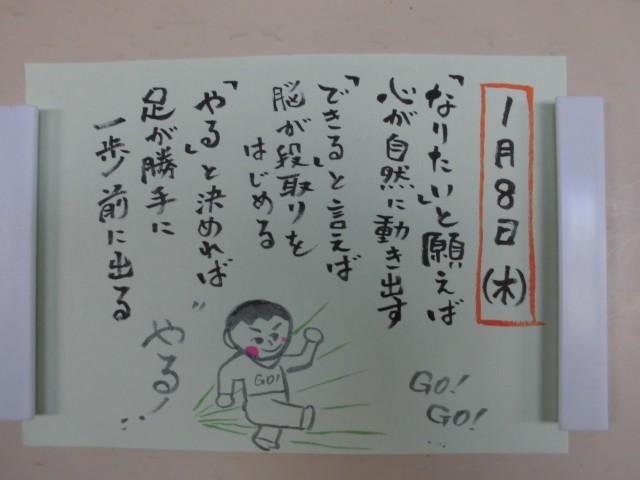 1月8日(木)
「なりたい」と願えば
心が自然に動き出す
「できる」と言えば
脳が段取りを
はじめる
「やる」と決めれば
足が勝手に
一歩前に出る
"やる"
GO!
GO!
GO!